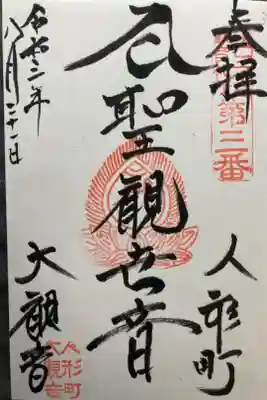 奉拝
第三番
人形町
聖觀世音
大觀音
人形町
大観音
令和二年
八月二十一日